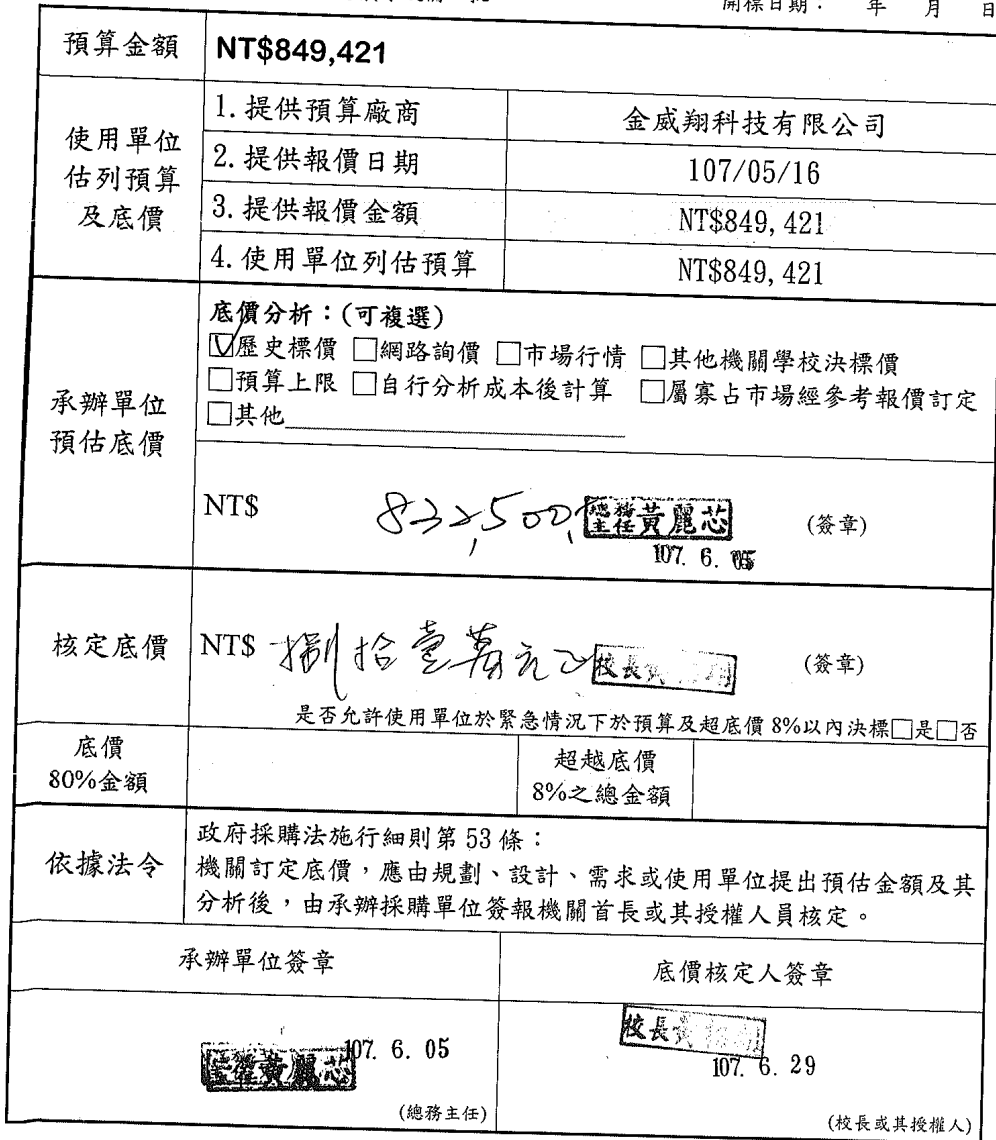 開標日期： 年 月 日
預算金額 NT$849,421
使用單位估列預算及底價
1.提供預算廠商 金威翔科技有限公司
2.提供報價日期 107/05/16
3.提供報價金額 NT$849,421
4.使用單位列估預算 NT$849,421
承辦單位預估底價
底價分析：(可複選)
☑歷史標價 □網路詢價 □市場行情 □其他機關學校決標價
□預算上限 □自行分析成本後計算 □屬寡占市場經參考報價訂定
□其他
NT$ 832,500 總務主任黃麗芯 (簽章)
107. 6. 05
核定底價 NT$ 捌拾壹萬元 校長黃 (簽章)
是否允許使用單位於緊急情況下於預算及超底價 8%以內決標□是□否
底價80%金額 超越底價8%之總金額
依據法令
政府採購法施行細則第 53 條：
機關訂定底價，應由規劃、設計、需求或使用單位提出預估金額及其
分析後，由承辦採購單位簽報機關首長或其授權人員核定。
承辦單位簽章 底價核定人簽章
總務主任黃麗芯 107. 6. 05
(總務主任)
校長黃
107. 6. 29
(校長或其授權人)